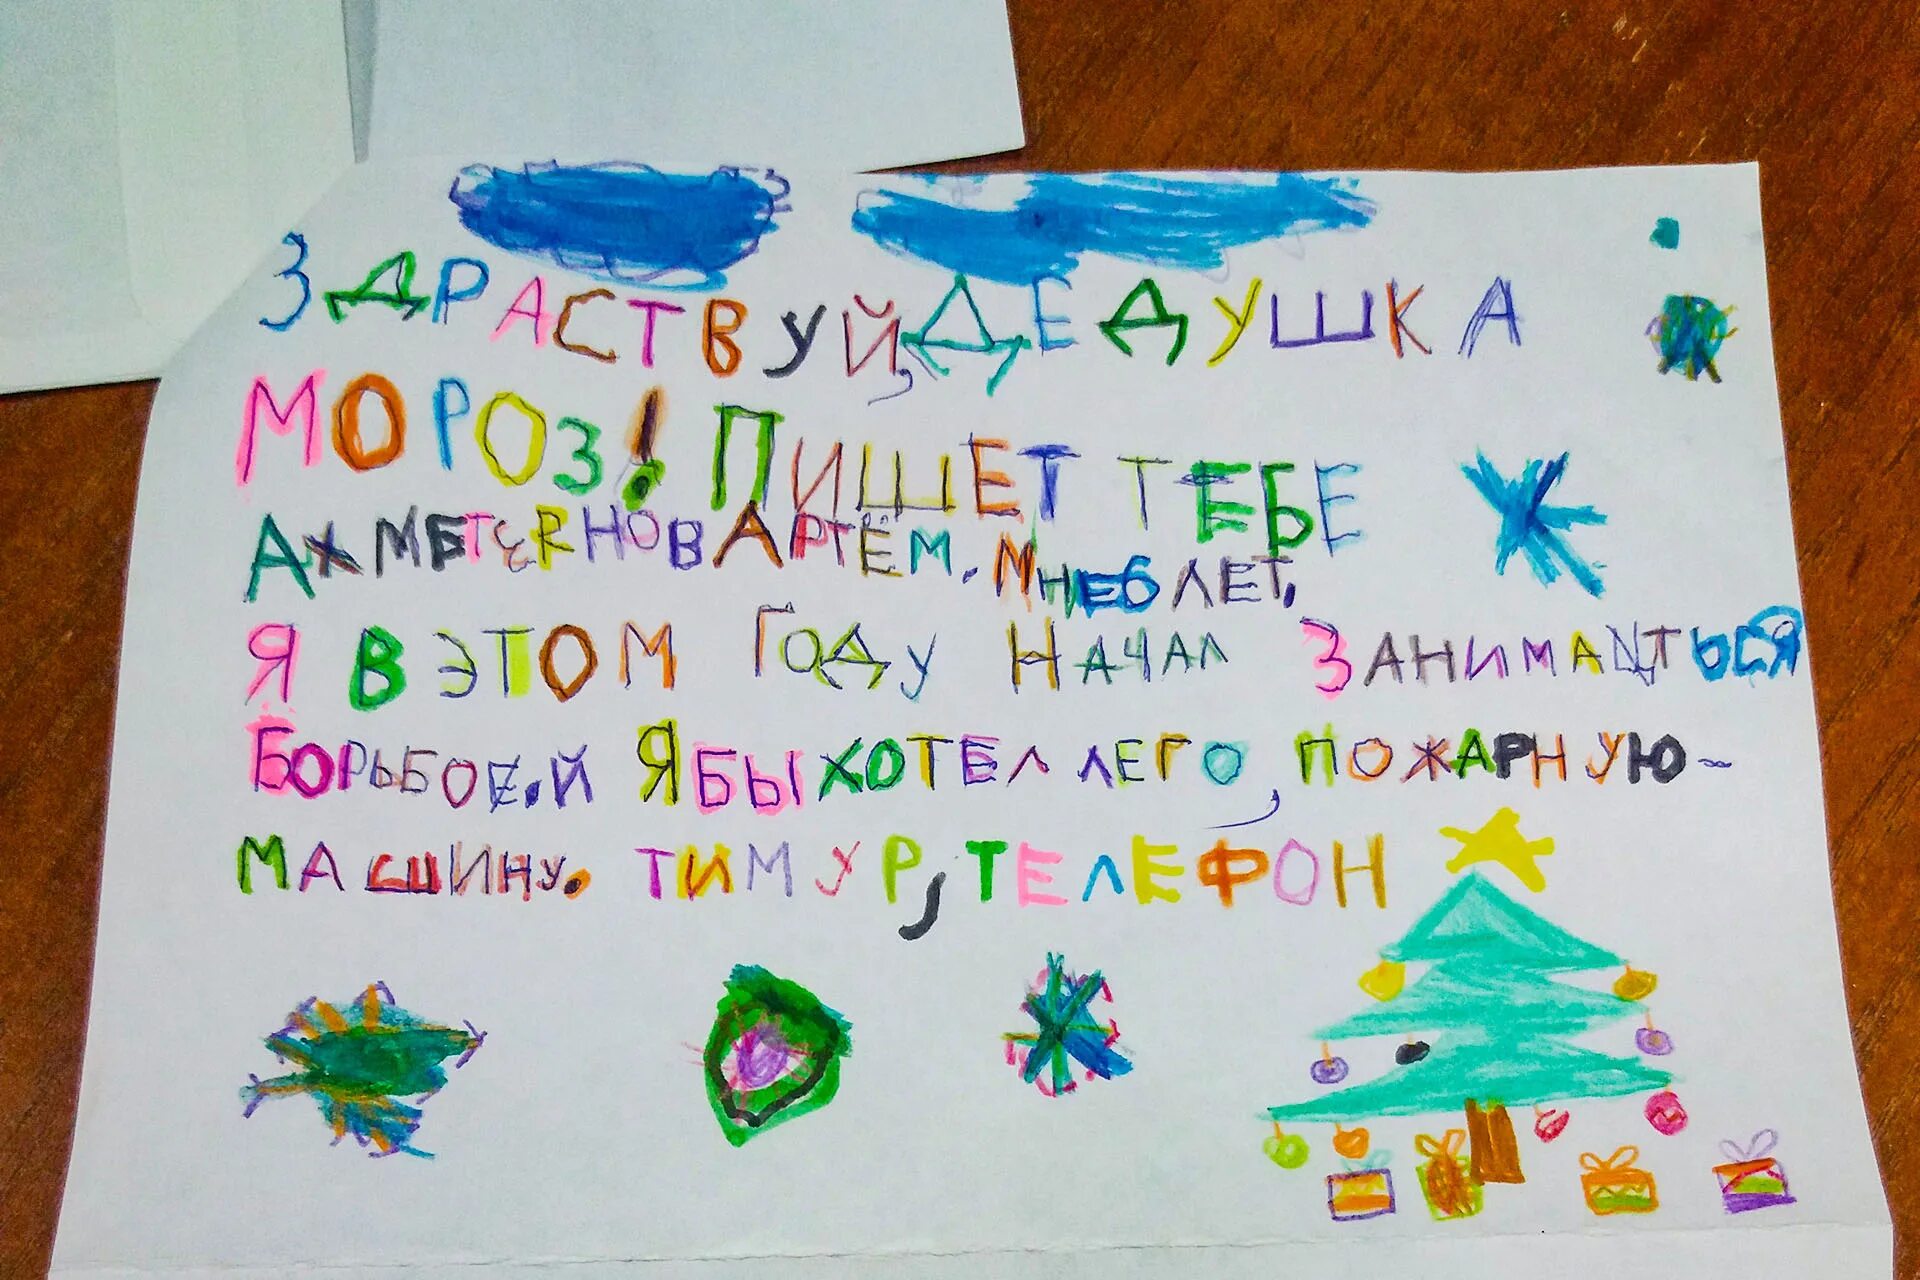 ЗДРАСТВУЙ, ДЕДУШКА
МОРОЗ! ПИШЕТ ТЕБЕ
АРТЁМ. МНЕ 6 ЛЕТ.
Я В ЭТОМ ГОДУ НАЧАЛ ЗАНИМАТЬСЯ
БОРЬБОЕ.Й Я БЫ ХОТЕЛ ЛЕГО, ПОЖАРНУЮ-
МАШИНУ. ТИМУР, ТЕЛЕФОН